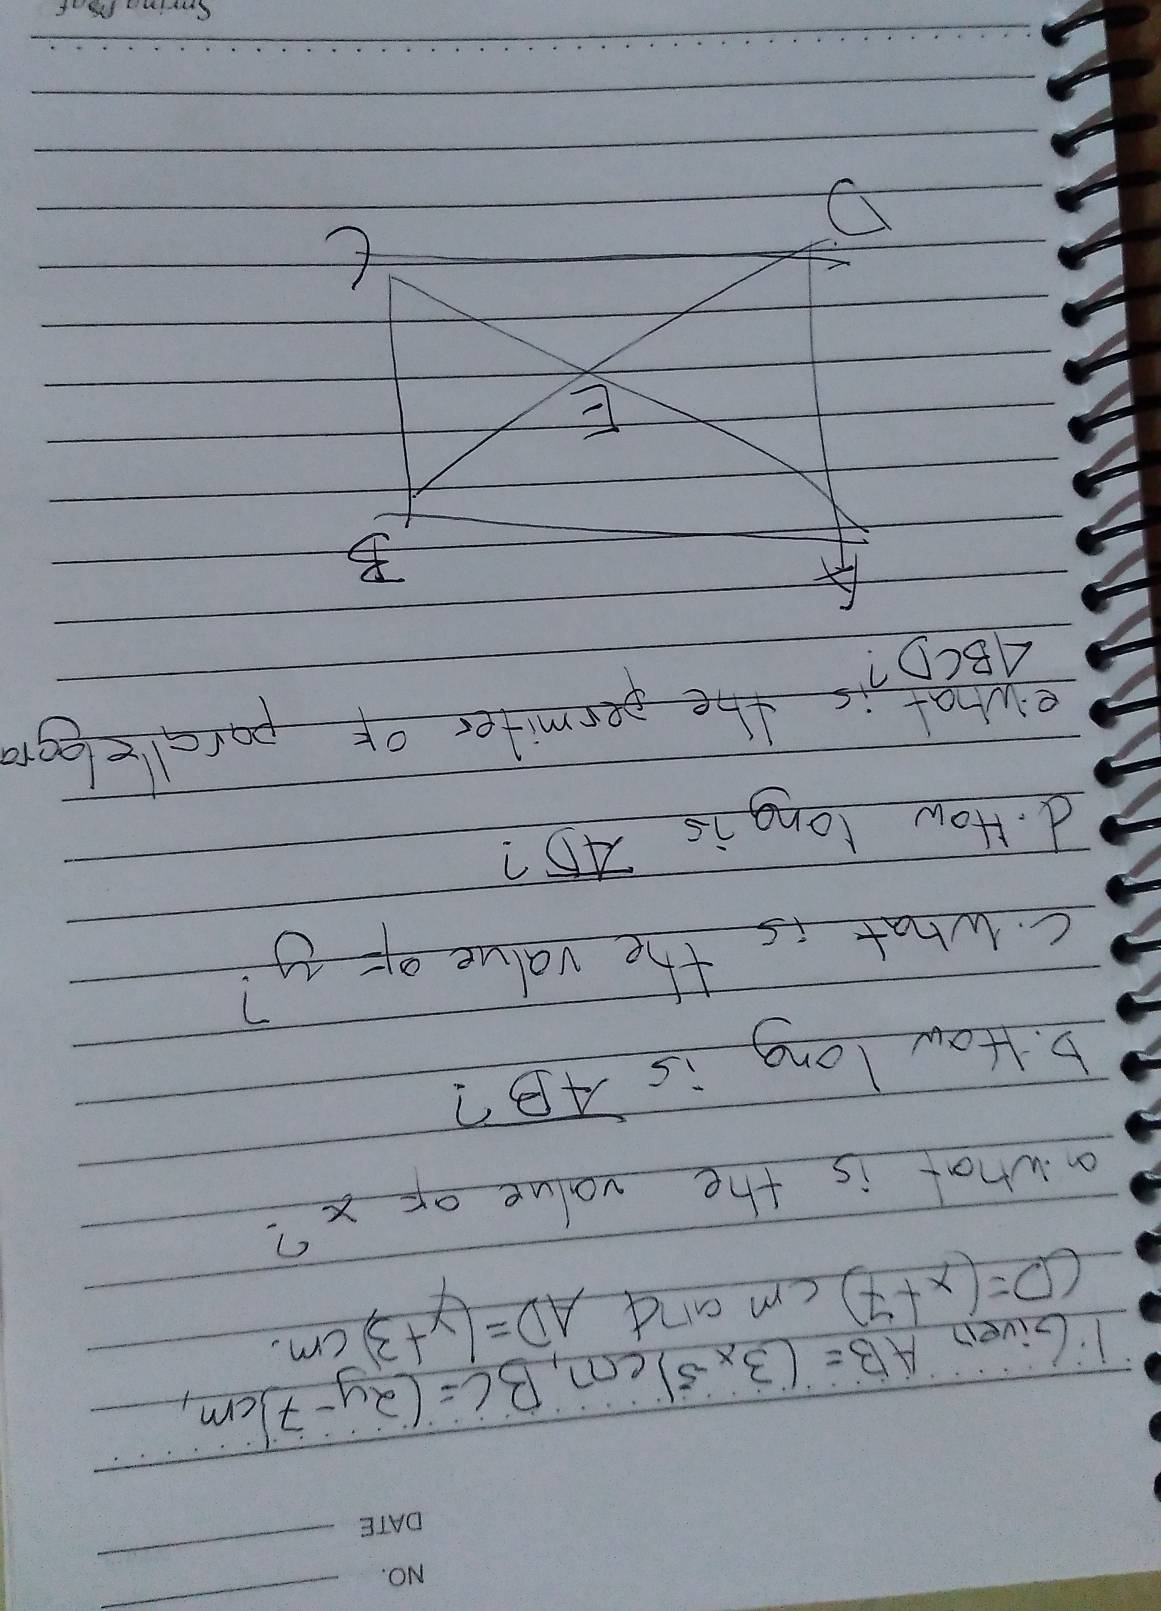 NO.
DATE
1. Given AB = (3x-5)cm, BC = (2y-7)cm,
CD = (x+7) cm and AD = (y+3) cm.
a. what is the value of x?
b. How long is AB?
c. what is the value of y?
d. How long is AD?
e. what is the permiter of parallelogra
ABCD?
A B
E
D C